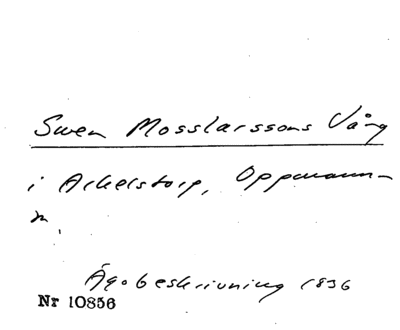 Swen Mosslarssons Vång
i Arkelstorp, Oppmann-
n.
Ägobeskrivning 1836
Nr 10856